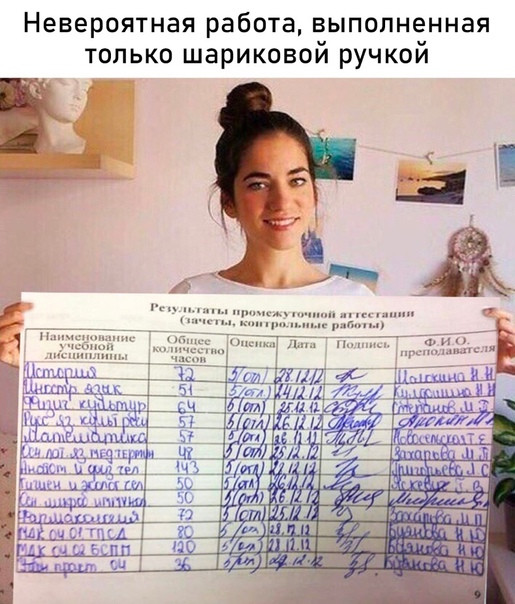 Невероятная работа, выполненная
только шариковой ручкой
Результаты промежуточной аттестации
(зачеты, контрольные работы)
Наименование учебной дисциплины Общее количество часов Оценка Дата Подпись Ф.И.О. преподавателя
История 72 5(отл) 28.12.12
Иностр язык 51 5(отл) 24.12.12
Физич культур 64 5(отл) 25.12.12 Степанов
Рус яз культ речи 57 5(отл) 26.12.12
Математика 57 5(отл) 26.12.12
Осн.лат.яз медтермин 48 5(отл) 25.12.12 Захарова М П
Анатом и физ чел 143 5(отл) 22.12.12 Григорьева Л С
Гигиен и эколог чел 50 5(отл)
Осн микро иммунол 50 5(отл) 26.12.12
Фармакология 72 5(отл) 25.12.12 Захарова М.П
МДК 04 01 ТПСД 80 5(отл) 28.12.12 Буянкова Н Ю
МДК 04.02 БСПП 120 5(отл) 28.12.12 Буянкова Н Ю
практ 04 36 5(отл) 29.12.12 Буянкова Н Ю
9